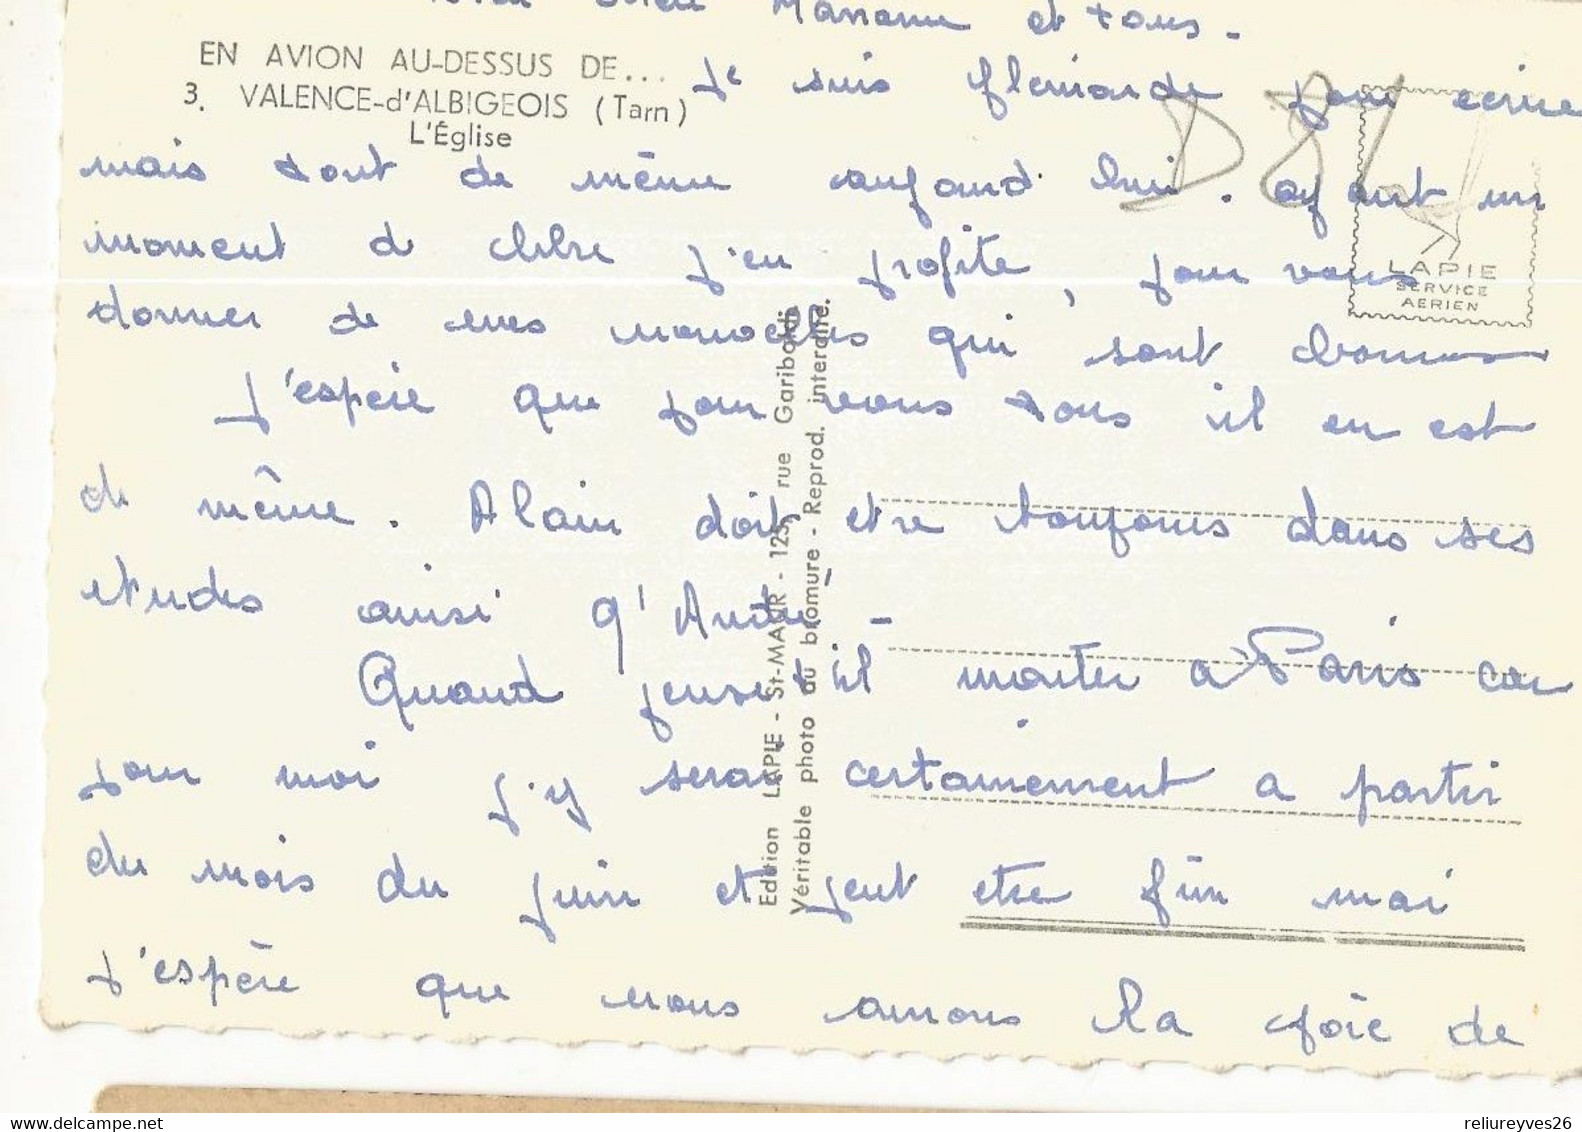 Mamam et tous -
EN AVION AU-DESSUS DE...
3. VALENCE-d'ALBIGEOIS (Tarn)
L'Église
Je suis flemarde pour ecrire
mais tout de même aujourd hui. ayant un
moment de libre j'en profite, pour vous
donner de mes nouvelles qui sont bonnes
J'espère que pour vous tous il en est
de même. Alain doit etre toujours dans ses
etudes ainsi q'André -
Quand pense t-il monter a Paris car
pour moi j'y serai certainement a partir
du mois du juin et peut etre fin mai
J'espère que nous aurons la joie de
LAPIE
SERVICE
AERIEN
Edition LAPIE - St-MAUR - 125, rue Garibaldi
Véritable photo au bromure - Reprod. interdite.
D81
reliureyves26